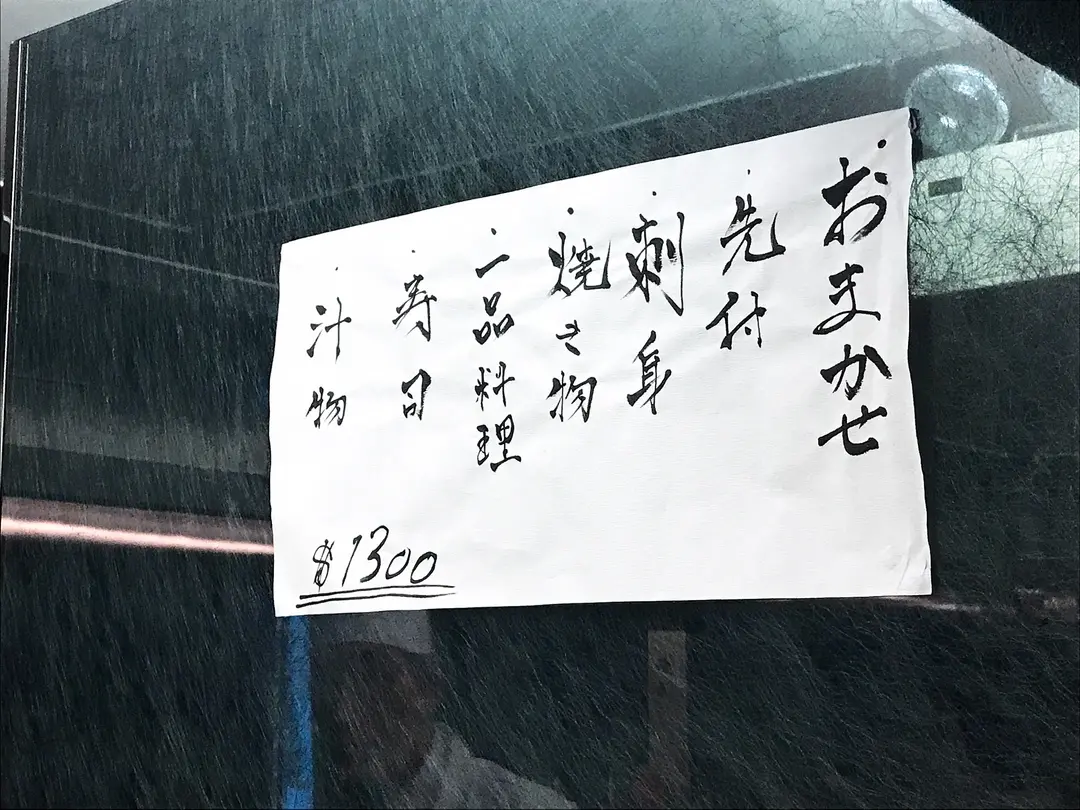 おまかせ
先付
刺身
焼き物
一品料理
寿司
汁物
$1300